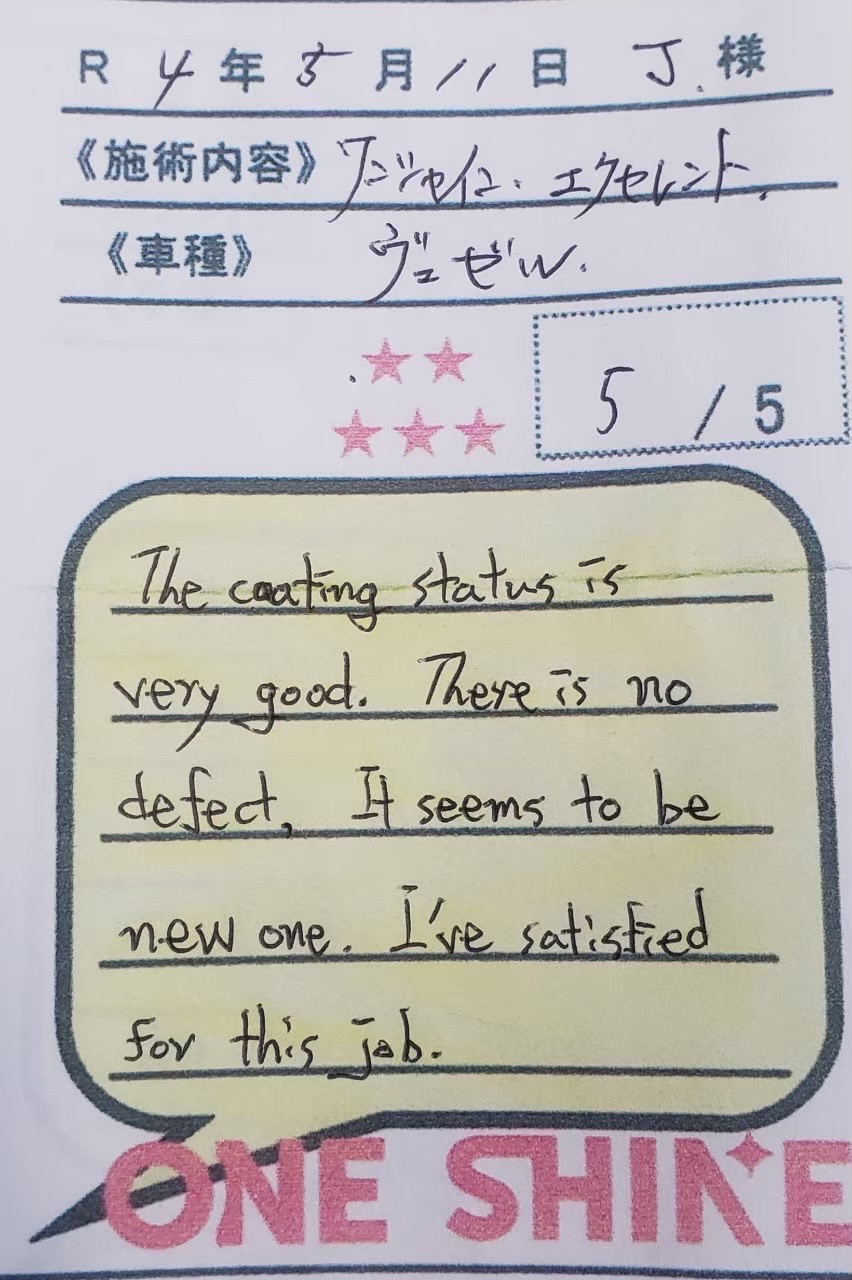 R 4年5月11日 J.様
《施術内容》ワンシャイン. エクセレント.
《車種》 ヴェゼル.
5 / 5
The coating status is
very good. There is no
defect, It seems to be
new one. I've satisfied
for this job.
ONE SHINE